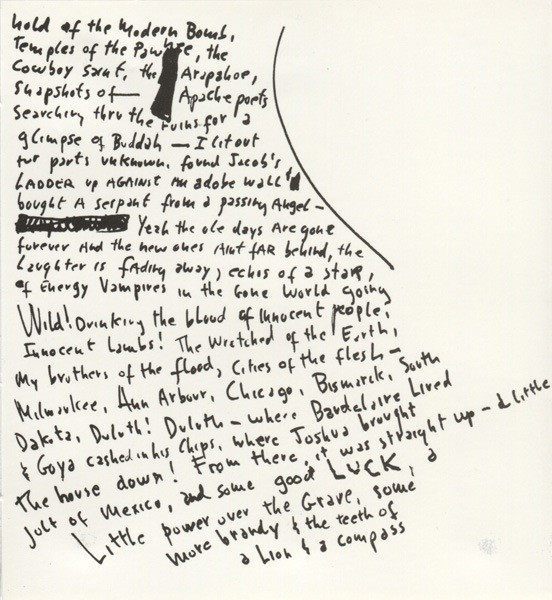 hold of the Modern Bomb,
Temples of the Pawnee, the
Cowboy saint, the Arapahoe,
snapshots of — Apache poets
searching thru the ruins for a
glimpse of Buddah — I lit out
for parts unknown, found Jacob's
LADDER up AGAINST AN adobe wall &
bought A serpant from a passing Angel —
Yeah the ole days Are gone
forever And the new ones Aint fAR behind, the
Laughter is fAding away, echos of a star,
of Energy Vampires in the Gone World going
Wild! Drinking the blood of innocent people,
Innocent Lambs! The Wretched of the Earth,
My brothers of the flood, Cities of the flesh —
Milwaukee, Ann Arbour, Chicago, Bismarck, South
Dakota, Duluth! Duluth — where Baudelaire Lived
& Goya cashed in his Chips, where Joshua brought
The house down! From there, it was straight up — a little
jolt of Mexico, and some good LUCK, a
Little power over the Grave, some
more brandy & the teeth of
a Lion & a compass